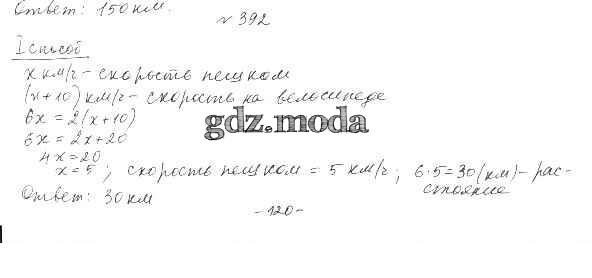 Ответ: 150 км.
№ 392
I способ
x км/ч – скорость пешком
(x+10) км/ч – скорость на велосипеде
6x = 2(x+10)
6x = 2x+20
4x=20
x=5; скорость пешком = 5 км/ч; 6·5=30(км) – рас-
стояние
Ответ: 30 км
-120-
gdz.moda